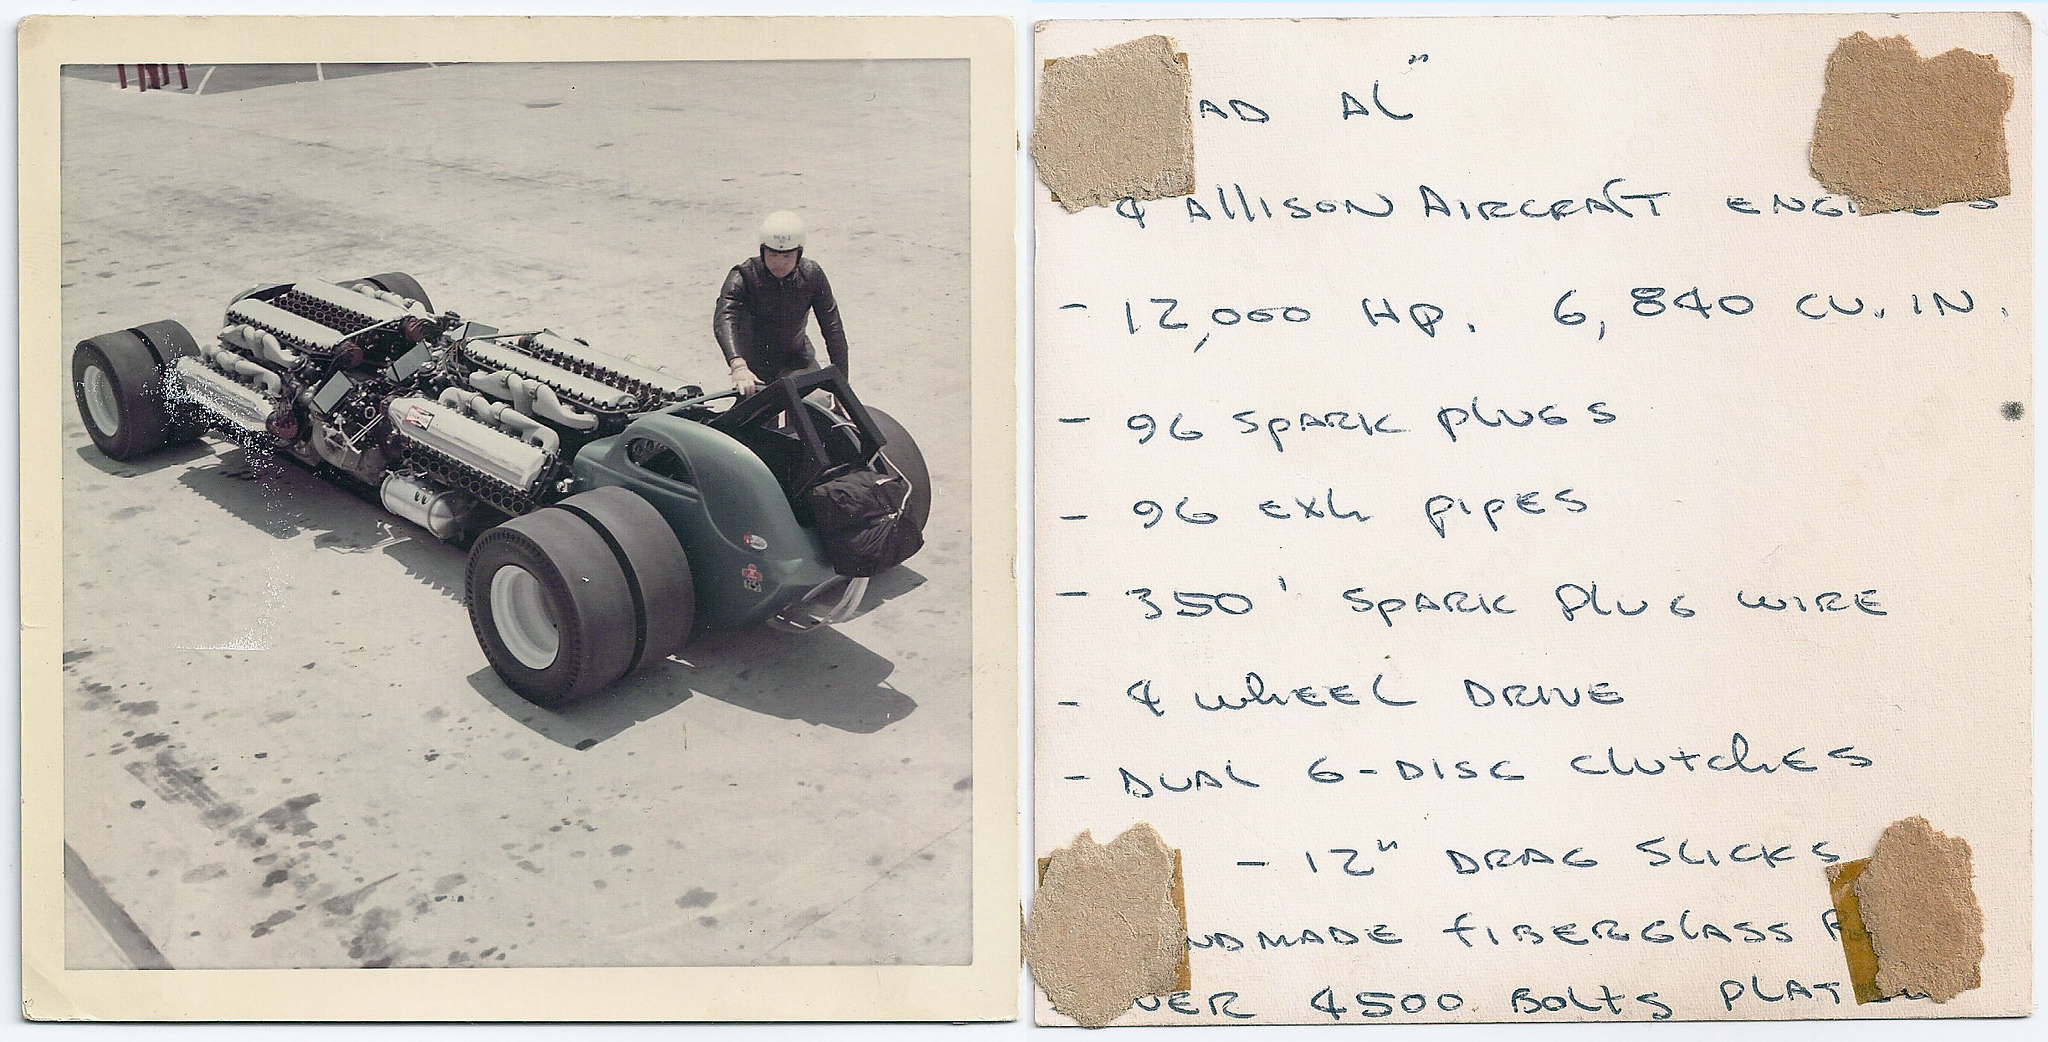 AD AL"
4 Allison Aircraft Engines
- 12,000 HP. 6,840 CU. IN.
- 96 Spark plugs
- 96 exh pipes
- 350' Spark Plug Wire
- 4 Wheel Drive
- Dual 6-Disc Clutches
- 12" Drag Slicks
NDMADE FIBERGLASS
VER 4500 Bolts PLAT